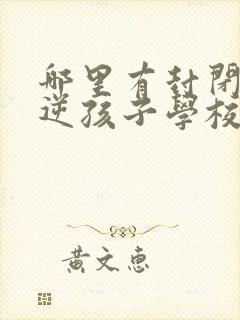 哪里有封閉
逆孩子學校
黃文惠